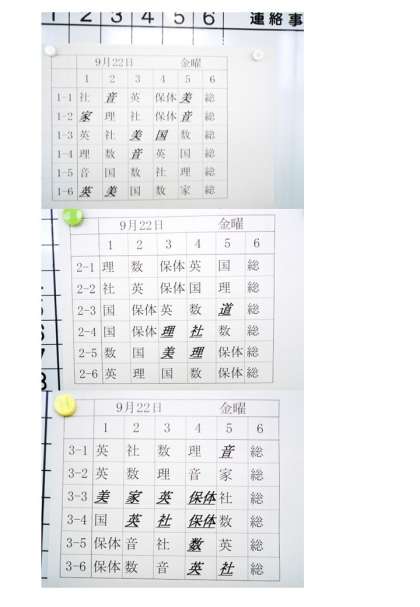 1 2 3 4 5 6 連絡事
9月22日 金曜
1 2 3 4 5 6
1-1 社 音 英 保体 美 総
1-2 家 理 社 保体 音 総
1-3 英 社 美 国 数 総
1-4 理 数 音 英 国 総
1-5 音 国 数 社 理 総
1-6 英 美 国 数 家 総
9月22日 金曜
1 2 3 4 5 6
2-1 理 数 保体 英 国 総
2-2 社 英 保体 国 理 総
2-3 国 保体 英 数 道 総
2-4 国 保体 理 社 数 総
2-5 数 国 美 理 保体 総
2-6 英 理 国 数 保体 総
9月22日 金曜
1 2 3 4 5 6
3-1 英 社 数 理 音 総
3-2 英 数 理 音 家 総
3-3 美 家 英 保体 社 総
3-4 国 英 社 保体 数 総
3-5 保体 音 社 数 英 総
3-6 保体 数 音 英 社 総